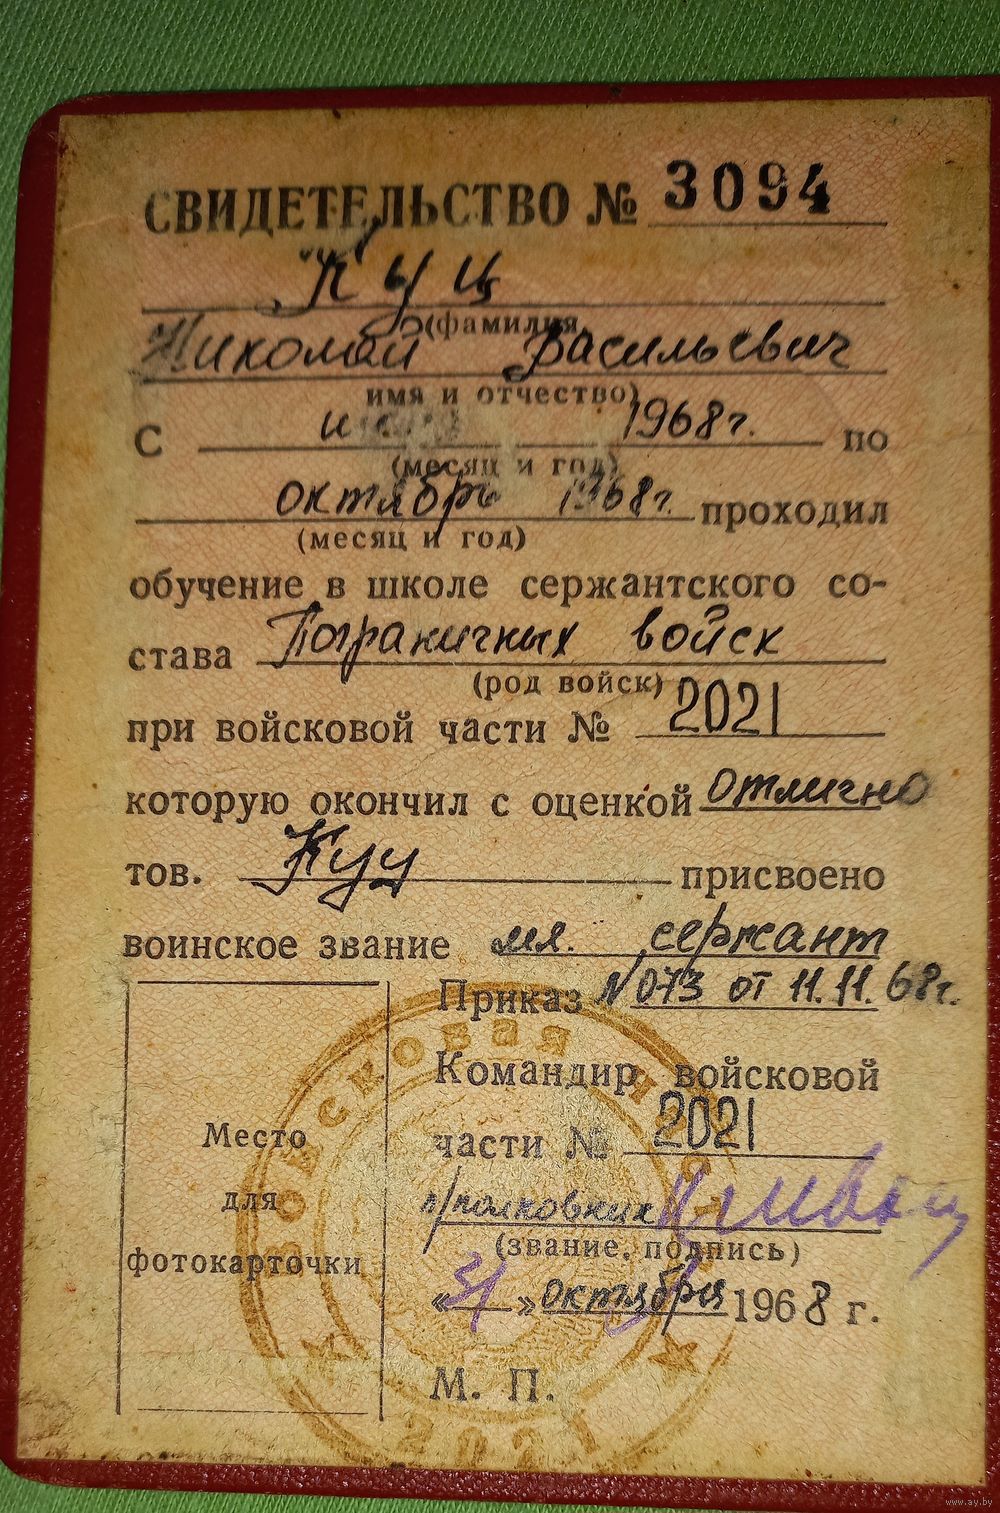 СВИДЕТЕЛЬСТВО № 3094
Куц
(фамилия,
Николай Васильевич
имя и отчество)
С 1968г. по
(месяц и год)
октябрь 1968г. проходил
(месяц и год)
обучение в школе сержантского со-
става Пограничных войск
(род войск)
при войсковой части № 2021
которую окончил с оценкой отлично
тов. Куц присвоено
воинское звание мл. сержант
Приказ №073 от 11.11.68г.
Командир войсковой
части № 2021
п/полковник
(звание, подпись)
«31» октября 1968 г.
М. П.
Место
для
фотокарточки
ВОЙСКОВАЯ
2021
www.ay.by